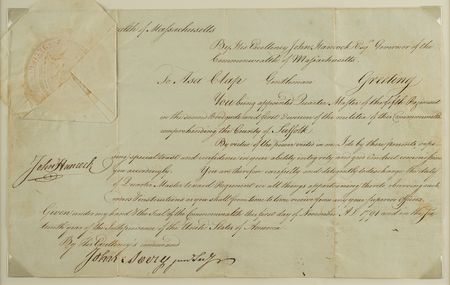 alth of Massachusetts
By His Excellency John Hancock Esqr Governor of the
Commonwealth of Massachusetts.
To Asa Clap Gentleman Greeting
You being appointed Quarter Master of the fifth Regiment
in the second Brigade and first Division of the militia of this Commonwealth
comprehending the County of Suffolk
By virtue of the power vested in me I do by these presents repo-
sing special trust and confidence in your ability, integrity and good conduct commission
you accordingly. You are therefore carefully and diligently to discharge the duty
of Quarter Master to said Regiment in all things appertaining thereto observing such
orders & Instructions as you shall from time to time receive from any your superior officers.
John Hancock
Given under my hand & the Seal of the Commonwealth this first day of November A D 1791 and in the Six-
teenth year of the Independence of the United States of America
By His Excellency's command
John Avery junr Secy